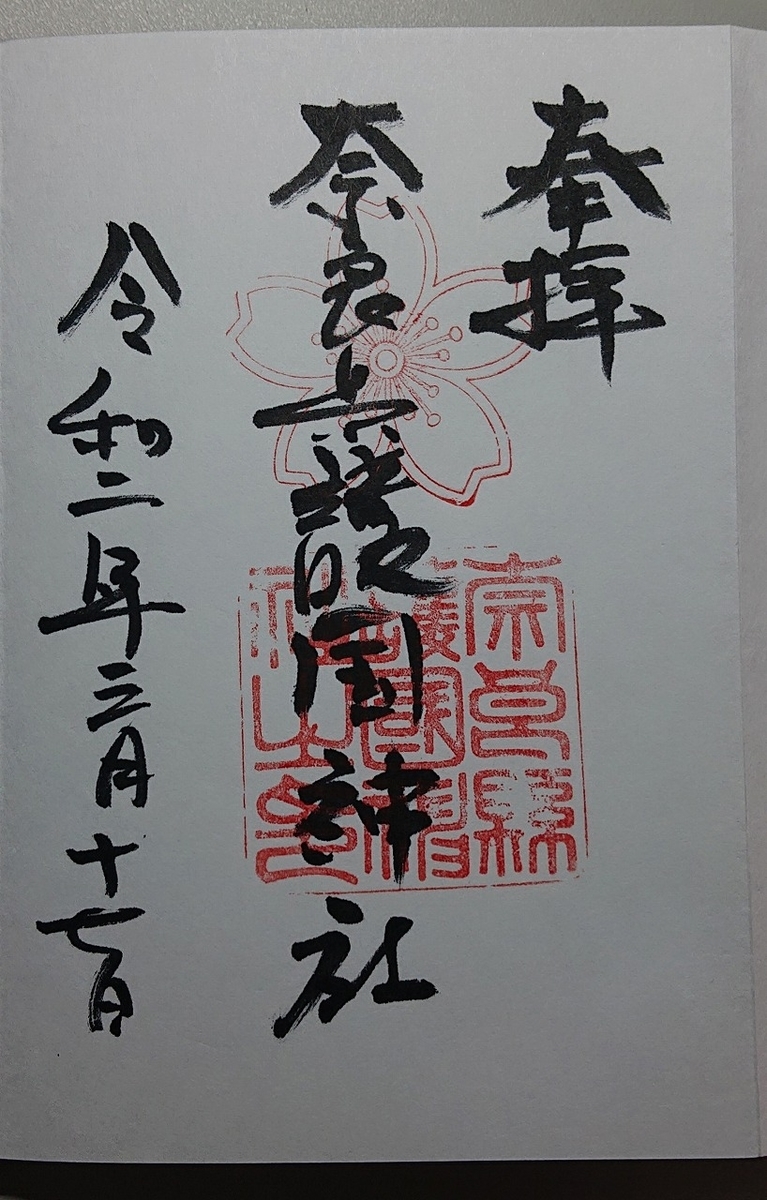 奉拝
奈良県護国神社
令和二年三月十七日
奈良縣
護國神
社之印